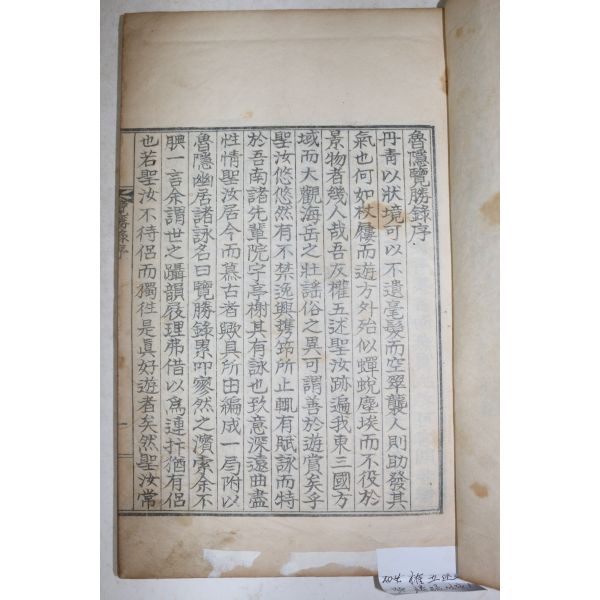 魯隱覽勝錄序
丹青以狀境可以不遺毫髮而空翠襲人則助發其
氣也何如杖屨而遊方外殆似蟬蛻塵埃而不役於
景物者幾人哉吾友權五述聖汝跡遍我東三國方
域而大觀海岳之壯謠俗之異可謂善於遊賞矣乎
聖汝悠悠然有不禁逸興携笻所止輒有賦詠而特
於吾南諸先輩院宇亭榭其有詠也致意深遠曲盡
性情聖汝居今而慕古者歟具所由編成一局附以
魯隱幽居諸詠名曰覽勝錄累叩寥然之濱索余不
腆一言余謂世之躡韻屐理弗借以爲連抃猶有侶
也若聖汝不待侶而獨往是眞好遊者矣然聖汝常
覽勝錄序
一